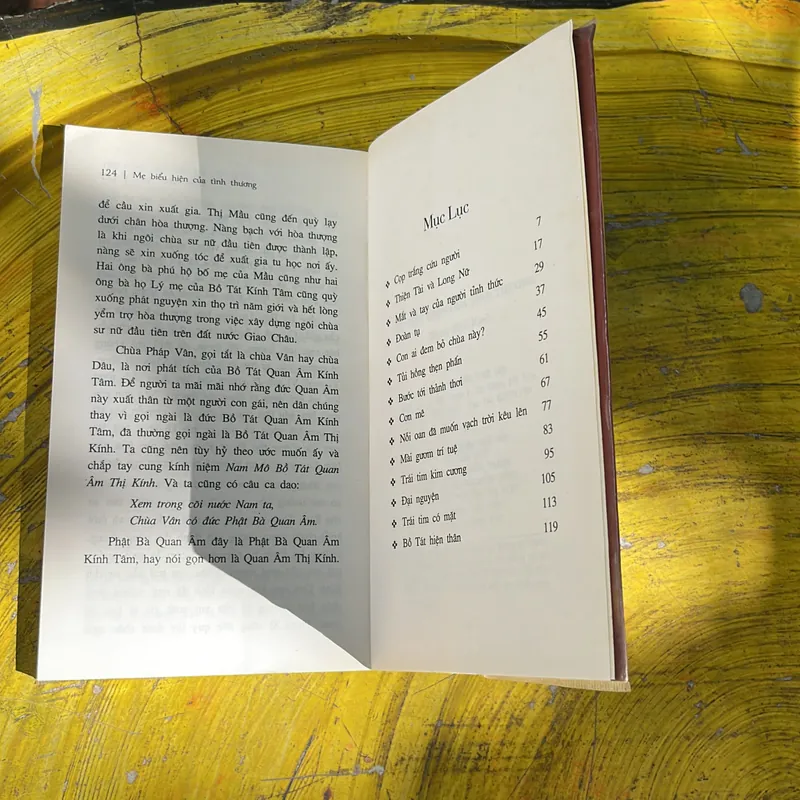 124 | Mẹ biểu hiện của tình thương
để cầu xin xuất gia. Thị Mầu cũng đến quỳ lạy
dưới chân hòa thượng. Nàng bạch với hòa thượng
là khi ngôi chùa sư nữ đầu tiên được thành lập,
nàng sẽ xin xuống tóc để xuất gia tu học nơi ấy.
Hai ông bà phú hộ bố mẹ của Mầu cũng như hai
ông bà họ Lý mẹ của Bồ Tát Kính Tâm cũng quỳ
xuống phát nguyện xin thọ trì năm giới và hết lòng
yểm trợ hòa thượng trong việc xây dựng ngôi chùa
sư nữ đầu tiên trên đất nước Giao Châu.
Chùa Pháp Vân, gọi tắt là chùa Vân hay chùa
Dâu, là nơi phát tích của Bồ Tát Quan Âm Kính
Tâm. Để người ta mãi mãi nhớ rằng đức Quan Âm
này xuất thân từ một người con gái, nên dân chúng
thay vì gọi ngài là đức Bồ Tát Quan Âm Kính
Tâm, đã thường gọi ngài là Bồ Tát Quan Âm Thị
Kính. Ta cũng nên tùy hỷ theo ước muốn ấy và
chắp tay cung kính niệm Nam Mô Bồ Tát Quan
Âm Thị Kính. Và ta cũng có câu ca dao:
Xem trong cõi nước Nam ta,
Chùa Vân có đức Phật Bà Quan Âm.
Phật Bà Quan Âm đây là Phật Bà Quan Âm
Kính Tâm, hay nói gọn hơn là Quan Âm Thị Kính.
Mục Lục
❖ Cọp trắng cứu người 7
❖ Thiện Tài và Long Nữ 17
❖ Mắt và tay của người tỉnh thức 29
❖ Đoàn tụ 37
❖ Con ai đem bỏ chùa này? 45
❖ Tủi hồng thẹn phấn 55
❖ Bước tới thảnh thơi 61
❖ Cơn mê 67
❖ Nỗi oan đã muốn vạch trời kêu lên 77
❖ Mài gươm trí tuệ 83
❖ Trái tim kim cương 95
❖ Đại nguyện 105
❖ Trái tim có mặt 113
❖ Bồ Tát hiện thân 119